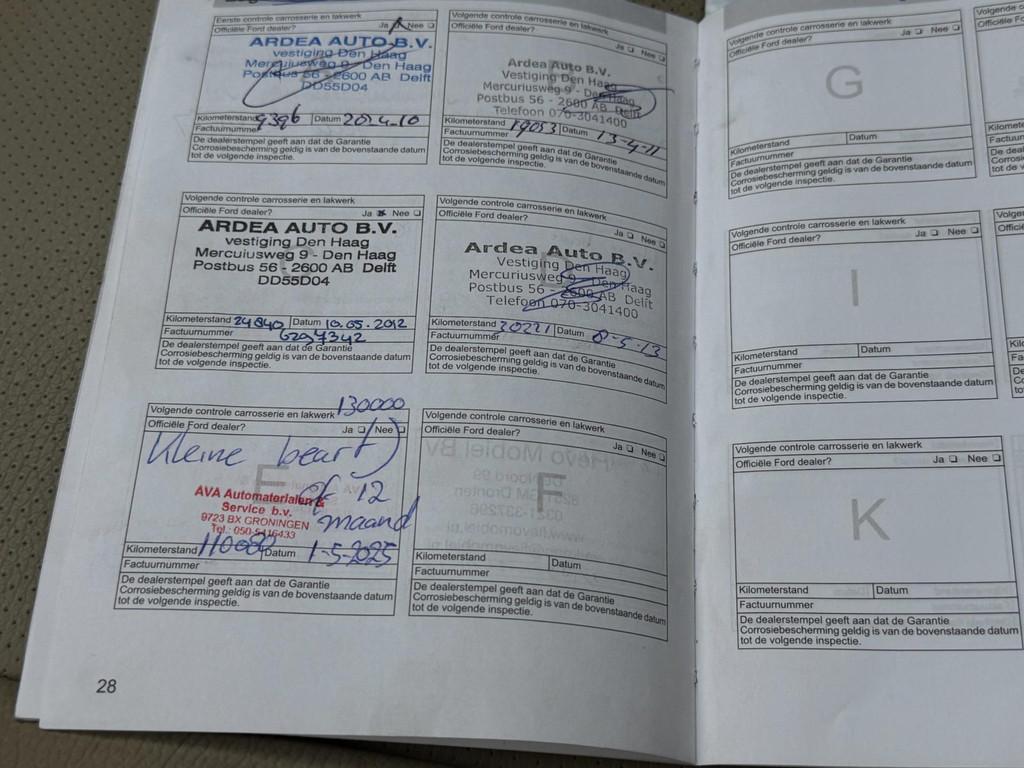 Eerste controle carrosserie en lakwerk
Officiële Ford dealer? Ja Nee
ARDEA AUTO B.V.
vestiging Den Haag
Mercuiusweg 9 - Den Haag
Postbus 56 - 2600 AB Delft
DD55D04
Kilometerstand 9396 Datum 2014-10
Factuurnummer
De dealerstempel geeft aan dat de Garantie
Corrosiebescherming geldig is van bovenstaande datum
tot de volgende inspectie.
Volgende controle carrosserie en lakwerk
Officiële Ford dealer?
Ja Nee
Ardea Auto B.V.
Vestiging Den Haag
Mercuriusweg 9 - Den Haag
Postbus 56 - 2600 AB Delft
Telefoon 070-3041400
Kilometerstand 19053 Datum 13-4-11
Factuurnummer
De dealerstempel geeft aan dat de Garantie
Corrosiebescherming geldig is van de bovenstaande datum
tot de volgende inspectie.
Volgende controle carrosserie en lakwerk
Officiële Ford dealer? Ja Nee
ARDEA AUTO B.V.
vestiging Den Haag
Mercuiusweg 9 - Den Haag
Postbus 56 - 2600 AB Delft
DD55D04
Kilometerstand 24840 Datum 10.05.2012
Factuurnummer 6297342
De dealerstempel geeft aan dat de Garantie
Corrosiebescherming geldig is van de bovenstaande datum
tot de volgende inspectie.
Volgende controle carrosserie en lakwerk
Officiële Ford dealer?
Ja Nee
Ardea Auto B.V.
Vestiging Den Haag
Mercuriusweg 9 - Den Haag
Postbus 56 - 2600 AB Delft
Telefoon 070-3041400
Kilometerstand 30221 Datum 8-5-13
Factuurnummer
De dealerstempel geeft aan dat de Garantie
Corrosiebescherming geldig is van de bovenstaande datum
tot de volgende inspectie.
Volgende controle carrosserie en lakwerk 130000
Officiële Ford dealer? Ja Nee
Kleine beurt
E
of 12
maand
AVA Automaterialen &
Service b.v.
9723 BX GRONINGEN
Tel.: 050-5416433
Kilometerstand 110082 Datum 1-5-2025
Factuurnummer
De dealerstempel geeft aan dat de Garantie
Corrosiebescherming geldig is van de bovenstaande datum
tot de volgende inspectie.
Volgende controle carrosserie en lakwerk
Officiële Ford dealer?
Ja Nee
F
Kilometerstand Datum
Factuurnummer
De dealerstempel geeft aan dat de Garantie
Corrosiebescherming geldig is van de bovenstaande datum
tot de volgende inspectie.
28
Volgende controle carrosserie en lakwerk
Officiële Ford dealer? Ja Nee
G
Kilometerstand Datum
Factuurnummer
De dealerstempel geeft aan dat de Garantie
Corrosiebescherming geldig is van de bovenstaande datum
tot de volgende inspectie.
Volgende controle carrosserie en lakwerk
Officiële Ford dealer? Ja Nee
I
Kilometerstand Datum
Factuurnummer
De dealerstempel geeft aan dat de Garantie
Corrosiebescherming geldig is van de bovenstaande datum
tot de volgende inspectie.
Volgende controle carrosserie en lakwerk
Officiële Ford dealer? Ja Nee
K
Kilometerstand Datum
Factuurnummer
De dealerstempel geeft aan dat de Garantie
Corrosiebescherming geldig is van de bovenstaande datum
tot de volgende inspectie.